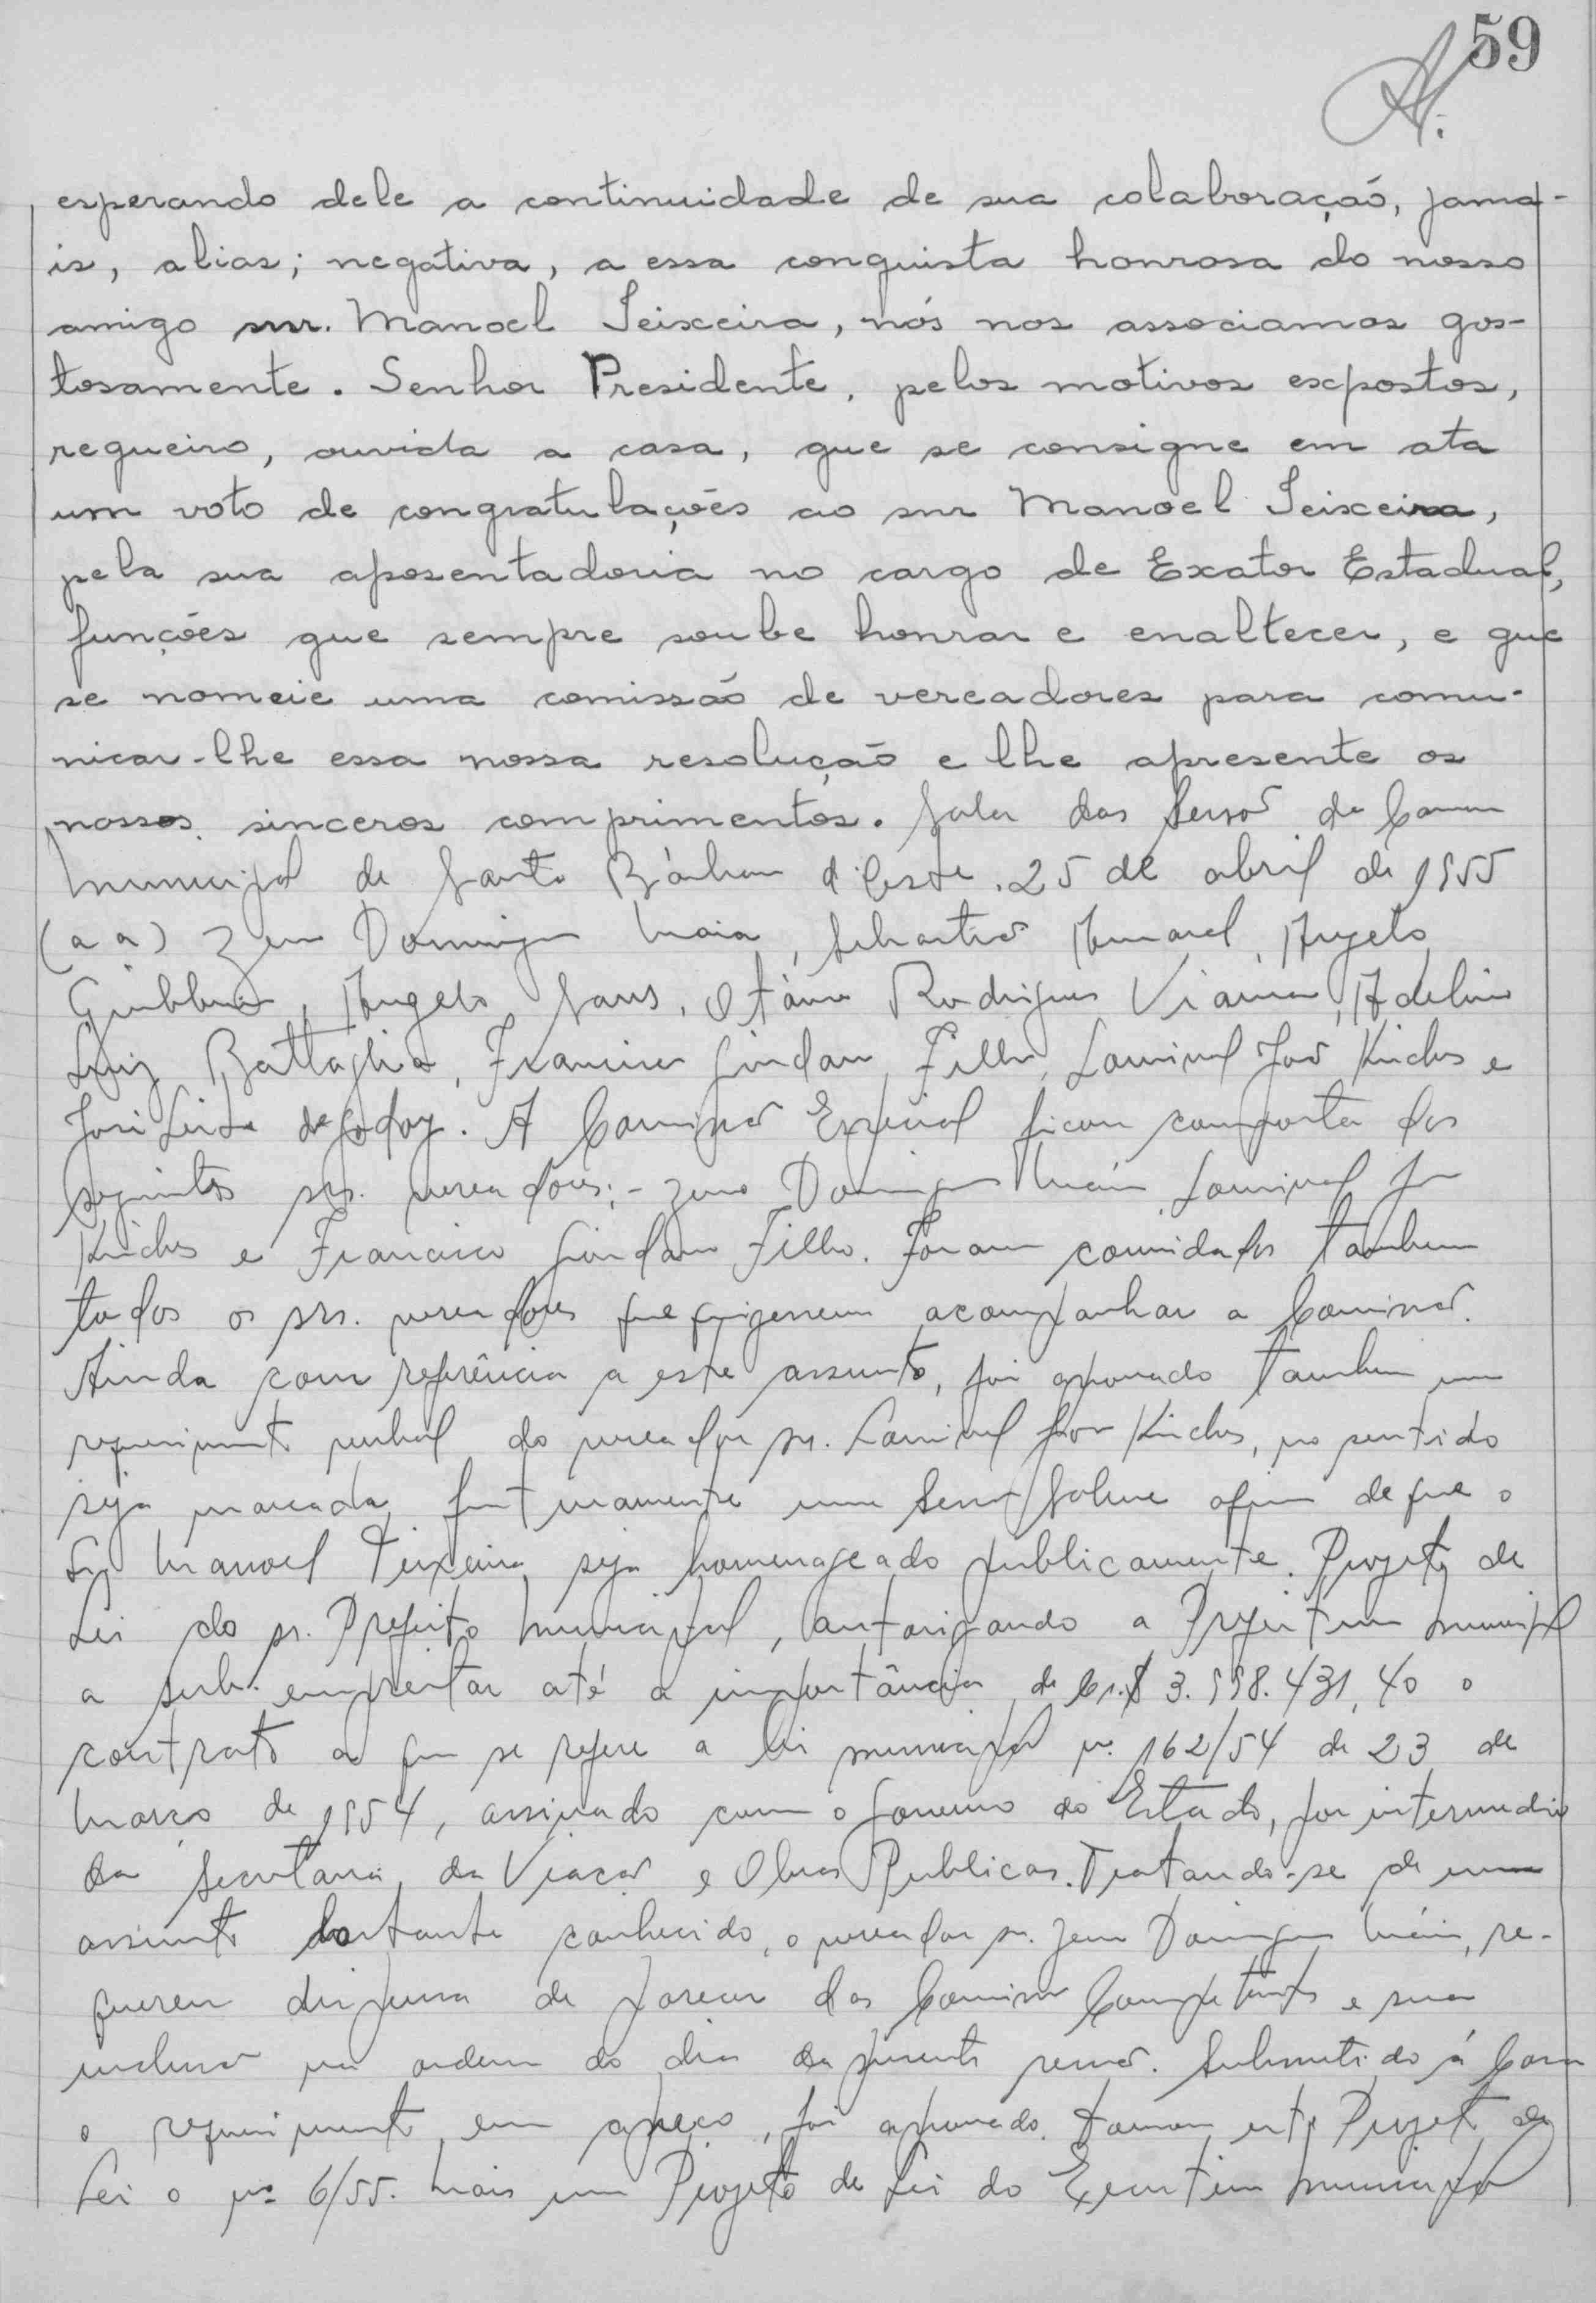 59
esperando dele a continuidade de sua colaboração, jama-
is, alias; negativa, a essa conquista honrosa do nosso
amigo snr. Manoel Teixeira, nós nos associamos gos-
tosamente. Senhor Presidente, pelos motivos expostos,
requeiro, ouvida a casa, que se consigne em ata
um voto de congratulações ao snr Manoel Teixeira,
pela sua aposentadoria no cargo de Exator Estadual,
funções que sempre soube honrar e enaltecer, e que
se nomeie uma comissão de vereadores para comu-
nicar-lhe essa nossa resolução e lhe apresente os
nossos sinceros comprimentos. Sala das Sessões da Camara
Municipal de Santa Bárbara d'Oeste. 25 de abril de 1955
(a a) Zeno Domingos Maia, Sebastião, Angelo
Giubbina, Angelo Sans, Otávio Rodrigues Viana, Adelino
Luiz Battaglia, Francisco Jordano Filho, Lourival José e
José Leite de Godoy. A Comissão Especial ficou composta dos
seguintes srs. vereadores:- Zeno Domingos Maia, Lourival José
e Francisco Jordano Filho. Foram convidados tambem
todos os srs. vereadores que quizerem acompanhar a Comissão.
Ainda com referência a este assunto, foi aprovado tambem um
requerimento verbal do vereador sr. Lourival José, no sentido
seja marcada futuramente uma Sessão Solene afim de que o
Sr Manoel Teixeira seja homenageado publicamente. Projeto de
Lei do sr. Prefeito Municipal, autorizando a Prefeitura Municipal
a sub-empreitar até a importância de Cr.$ 3.998.431,40 o
contrato a que se refere a lei municipal nº 162/54 de 23 de
Março de 1954, assinado com o Governo do Estado, por intermedio
da Secretaria da Viação e Obras Publicas. Tratando-se de um
assunto bastante conhecido, o vereador sr. Zeno Domingos Maia, re-
quereu dispensa de parecer das Comissões Competentes e sua
inclusão na ordem do dia da presente sessão. Submetido á Casa
o requerimento em apreço, foi aprovado. Tomou este Projeto de
Lei o nº 6/55. Mais um Projeto de Lei do Executivo Municipal